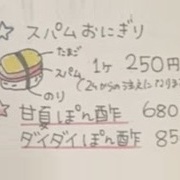 ☆ スパムおにぎり
たまご
スパム
のり
1ケ 250円
(2ケからの注文になりま
☆ 甘夏ぽん酢 680
ダイダイぽん酢 85